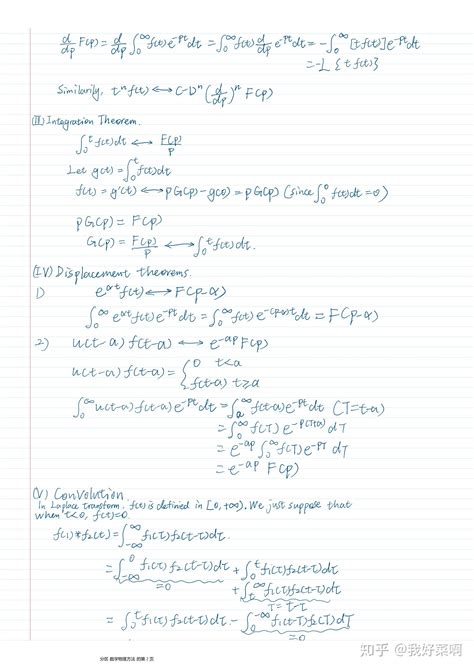 d/dp F(p) = d/dp ∫₀^∞ f(t)e^{-pt}dt = ∫₀^∞ f(t) d/dp e^{-pt}dt = -∫₀^∞ [t f(t)]e^{-pt}dt
= -L{t f(t)}
Similarily, tⁿf(t) ⟷ (-1)ⁿ(d/dp)ⁿ F(p)
(III) Integration Theorem.
∫₀^t f(t)dt ⟷ F(p)/p
Let g(t) = ∫₀^t f(t)dt
f(t) = g'(t) ⟷ pG(p) - g(0) = pG(p) (since ∫₀^0 f(t)dt = 0)
pG(p) = F(p)
G(p) = F(p)/p ⟷ ∫₀^t f(t)dt.
(IV) Displacement theorems.
1) e^{αt}f(t) ⟷ F(p-α)
∫₀^∞ e^{αt}f(t)e^{-pt}dt = ∫₀^∞ f(t)e^{-(p-α)t}dt = F(p-α)
2) u(t-a)f(t-a) ⟷ e^{-ap}F(p)
u(t-a)f(t-a) = { 0 t<a
f(t-a) t≥a
∫₀^∞ u(t-a)f(t-a)e^{-pt}dt = ∫ₐ^∞ f(t-a)e^{-pt}dt (T=t-a)
= ∫₀^∞ f(T)e^{-p(T+a)}dT
= e^{-ap}∫₀^∞ f(T)e^{-pT}dT
= e^{-ap}F(p)
(V) Convolution
In Laplace transform, f(t) is defined in [0,+∞). We just suppose that
when t<0, f(t)=0
f₁(t)*f₂(t) = ∫_{-∞}^∞ f₁(τ)f₂(t-τ)dτ
= ∫_{-∞}^0 f₁(τ)f₂(t-τ)dτ + ∫₀^t f₁(τ)f₂(t-τ)dτ
=0 + ∫_t^∞ f₁(τ)f₂(t-τ)dτ
T=t-τ
= ∫₀^t f₁(τ)f₂(t-τ)dτ - ∫₀^{-∞} f₁(t-T)f₂(T)dT
=0
分区 数学物理方法 的第 2 页
知乎 @我好菜啊